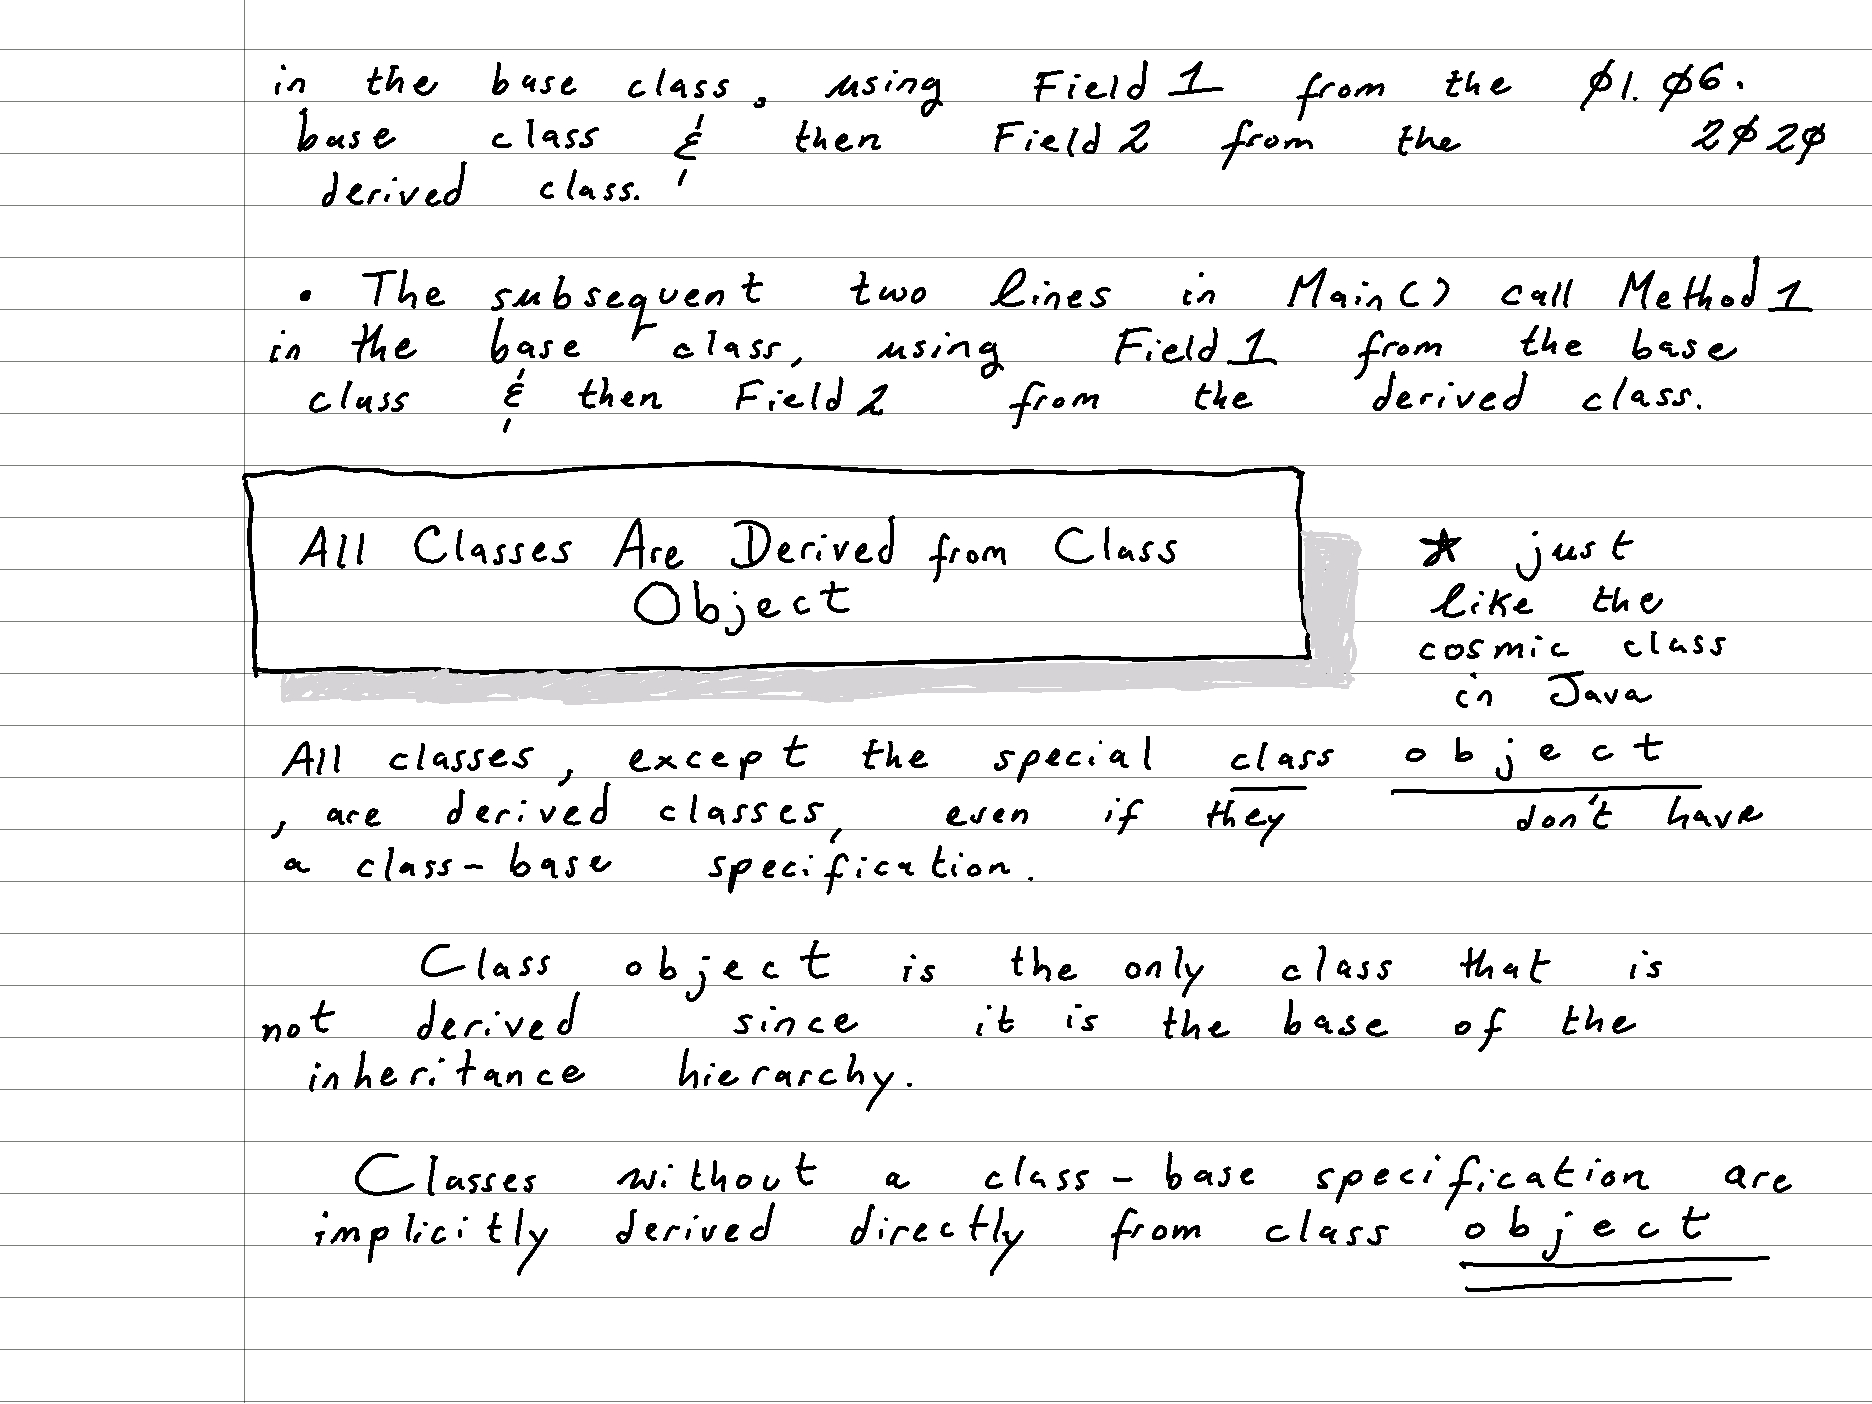 in the base class, using Field 1 from the Ø1. Ø6.
base class & then Field 2 from the 2Ø2Ø
derived class.
• The subsequent two lines in Main() call Method 1
in the base class, using Field 1 from the base
class & then Field 2 from the derived class.
All Classes Are Derived from Class
Object
★ just
like the
cosmic class
in Java
All classes, except the special class object
, are derived classes, even if they don't have
a class-base specification.
Class object is the only class that is
not derived since it is the base of the
inheritance hierarchy.
Classes without a class-base specification are
implicitly derived directly from class object